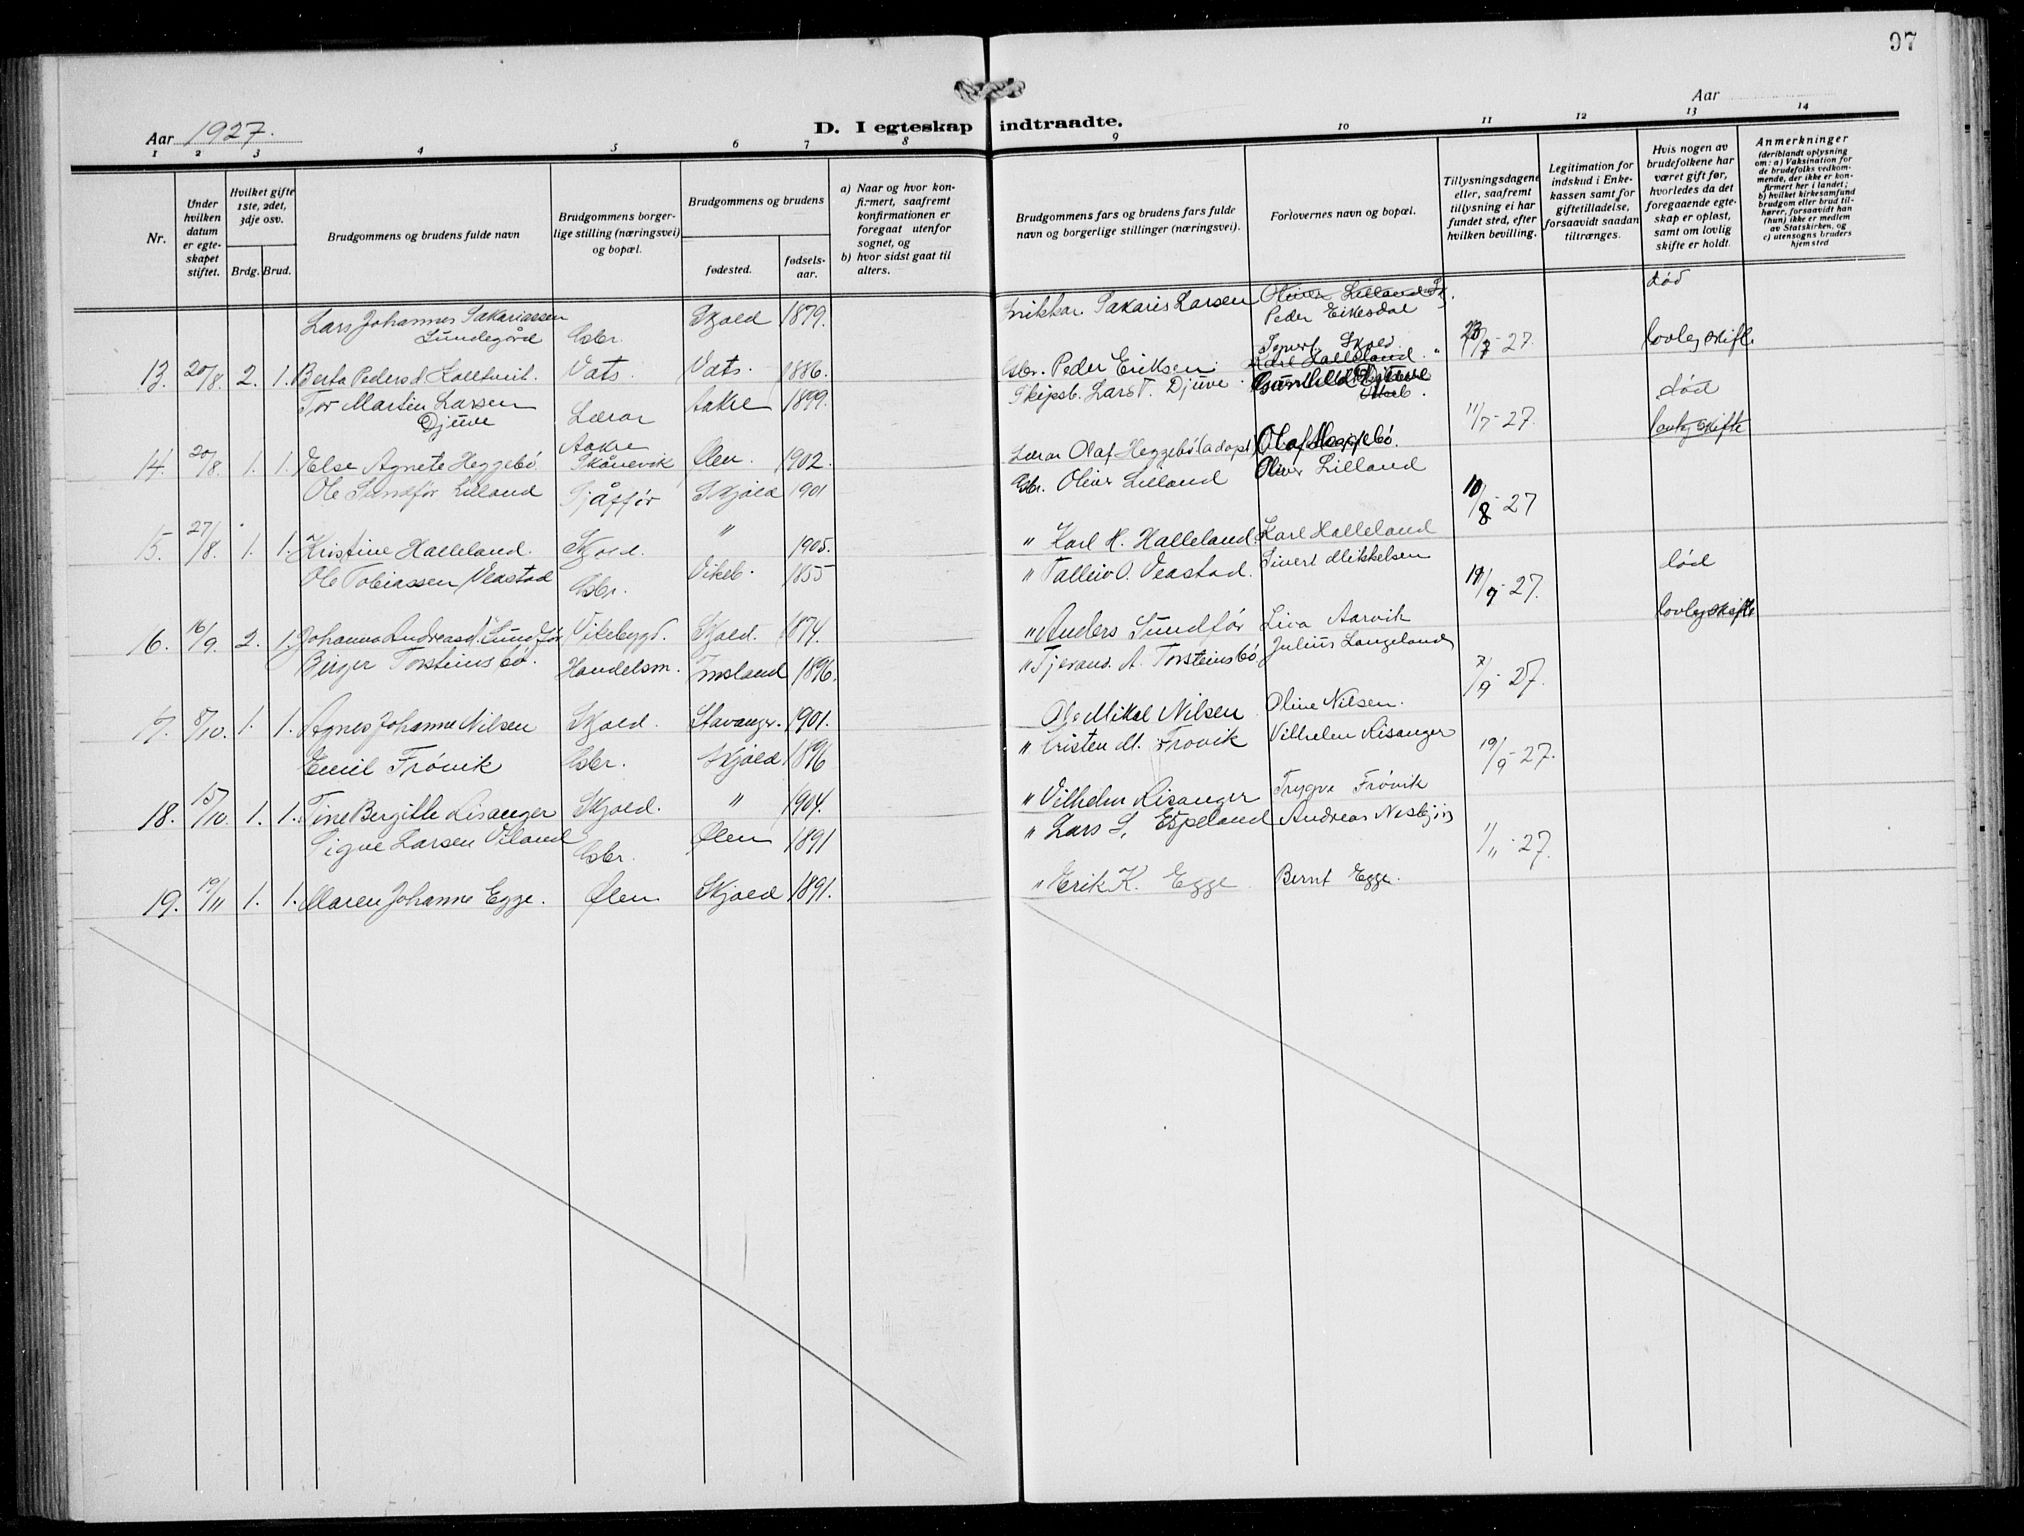 97
Aar 1927.
D. I egteskap indtraadte.
Aar
1 2 3 4 5 6 7 8 9 10 11 12 13 14
Nr.
Under hvilken datum er egteskapet stiftet.
Hvilket gifte 1ste, 2det, 3dje osv.
Brdg. Brud.
Brudgommens og brudens fulde navn
Brudgommens borgerlige stilling (næringsvei) og bopæl.
Brudgommens og brudens
fødested.
fødselsaar.
a) Naar og hvor konfirmert, saafremt konfirmationen er foregaat utenfor sognet, og
b) hvor sidst gaat til alters.
Brudgommens fars og brudens fars fulde navn og borgerlige stillinger (næringsvei).
Forlovernes navn og bopæl.
Tillysningsdagene eller, saafremt tillysning ei har fundet sted, efter hvilken bevilling.
Legitimation for indskud i Enkekassen samt for giftetilladelse, forsaavidt saadan tiltrænges.
Hvis nogen av brudefolkene har været gift før, hvorledes da det foregaaende egteskap er opløst, samt om lovlig skifte er holdt.
Anmerkninger
(deriblandt oplysning om: a) Vaksination for de brudefolks vedkommende, der ikke er konfirmert her i landet; b) hvilket kirkesamfund brudgom eller brud tilhører, forsaavidt han (hun) ikke er medlem av Statskirken, og c) utensogns bruders hjemsted
Lars Johannes Sakariassen Lundegård Gbr. Skjold 1879. Snikkar. Sakaris Larsen Oliver Lilland Sk. Peder Eikesdal død
13. 20/8. 2. 1. Berta Pedersd. Vats. Vats. 1886. Gbr. Peder Eriksen Skjold. Karl Halleland 7-27. lovleg skifte
Tor Martin Larsen Djuve Lærar Aakre 1899. Skipsb. Lars T. Djuve død
14. 20/8. 1. 1. Else Agnete Heggebö Aakre Skånevik Ølen. 1902. Lærar Olaf Heggebö (adopt) Olaf Heggebø. 11/7-27. lovleg skifte
Ole Sundför Lilland Sjåffør Skjold 1901 Gbr. Oliver Lilland Oliver Lilland
15. 27/8. 1. 1. Kristine Halleland. Skjold. " 1905. " Karl H. Halleland Karl Halleland 10/8-27
Ole Tobiassen Veastad Gbr. Vikeb. 1855 " Talleiv O. Veastad. Sivert Mikkelsen død
16. 16/9. 2. 1. Johanna Andreasd. Sundför Vikebygd. Skjold. 1874. " Anders Sundför Liva Aarvik /9-27. lovleg skifte
Birger Torsteinsbö. Handelsm. Imsland 1896. " Tjerand A. Torsteinsbö Julius Langeland
17. 8/10. 1. 1. Agnes Johanne Nilsen Skjold. Stavanger. 1901. Ole Mikal Nilsen Oline Nilsen. 7/9-27.
Emil Frövik Gbr. Skjold 1896 " Kristen M. Frövik Vilhelm Risanger
18. 15/10. 1. 1. Tine Bergitte Risanger Skjold. " 1904. " Vilhelm Risanger Trygve Frövik 19/9-27.
Sigve Larsen Viland Gbr. Ølen 1891 " Lars S. Espeland Andreas Nesbjör
19. 19/11 1. 1. Maren Johanne Egge. Ølen Skjold 1891. " Erik K. Egge Bernt Egge. 1/11-27.